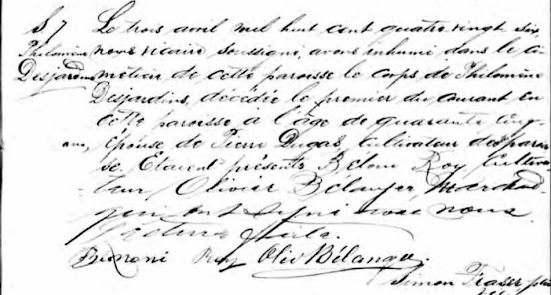 S 7
Philomène
Desjardins
Le trois avril mil huit cent quatre vingt six,
nous vicaire soussigné, avons inhumé dans le ci-
metière de cette paroisse le corps de Philomène
Desjardins, décédée le premier du courant en
cette paroisse à l'âge de quarante cinq
ans, épouse de Pierre Dugas, cultivateur de
se. Étaient présents Roy, cultiva-
teur, Olivier Bélanger, marchand
qui ont signé avec nous.
Roy Oliv Bélanger.
Simon Fraser, ptre